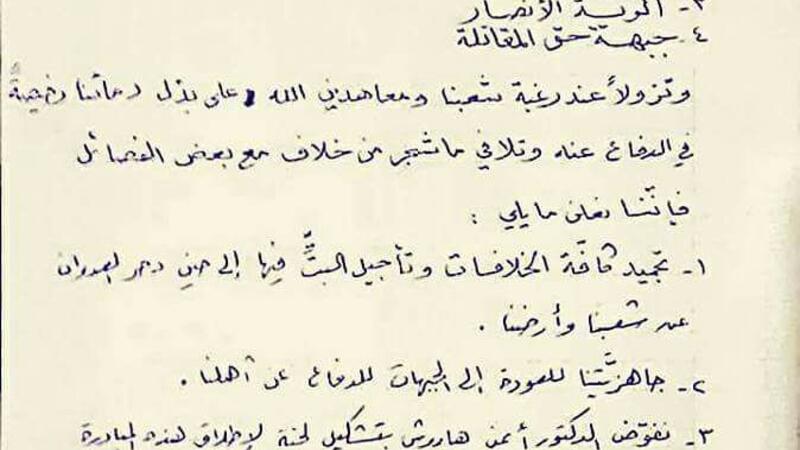 ٣- ألوية الأنصار
٤- جبهة حق المقاتلة
ونزولاً عند رغبة شعبنا ومعاهدين الله على بذل دمائنا رخيصةً
في الدفاع عنه وتلافي ما شجر من خلاف مع بعض الفصائل
فإنّنا نعلن ما يلي :
١- تجميد كافّة الخلافات وتأجيل البتِّ فيها إلى حين دحر العدوان
عن شعبنا وأرضنا .
٢- جاهزيَّتنا للعودة إلى الجبهات للدفاع عن أهلنا .
٣- نفوّض الدكتور أيمن هاروش بتشكيل لجنة لإطلاق هذه المبادرة